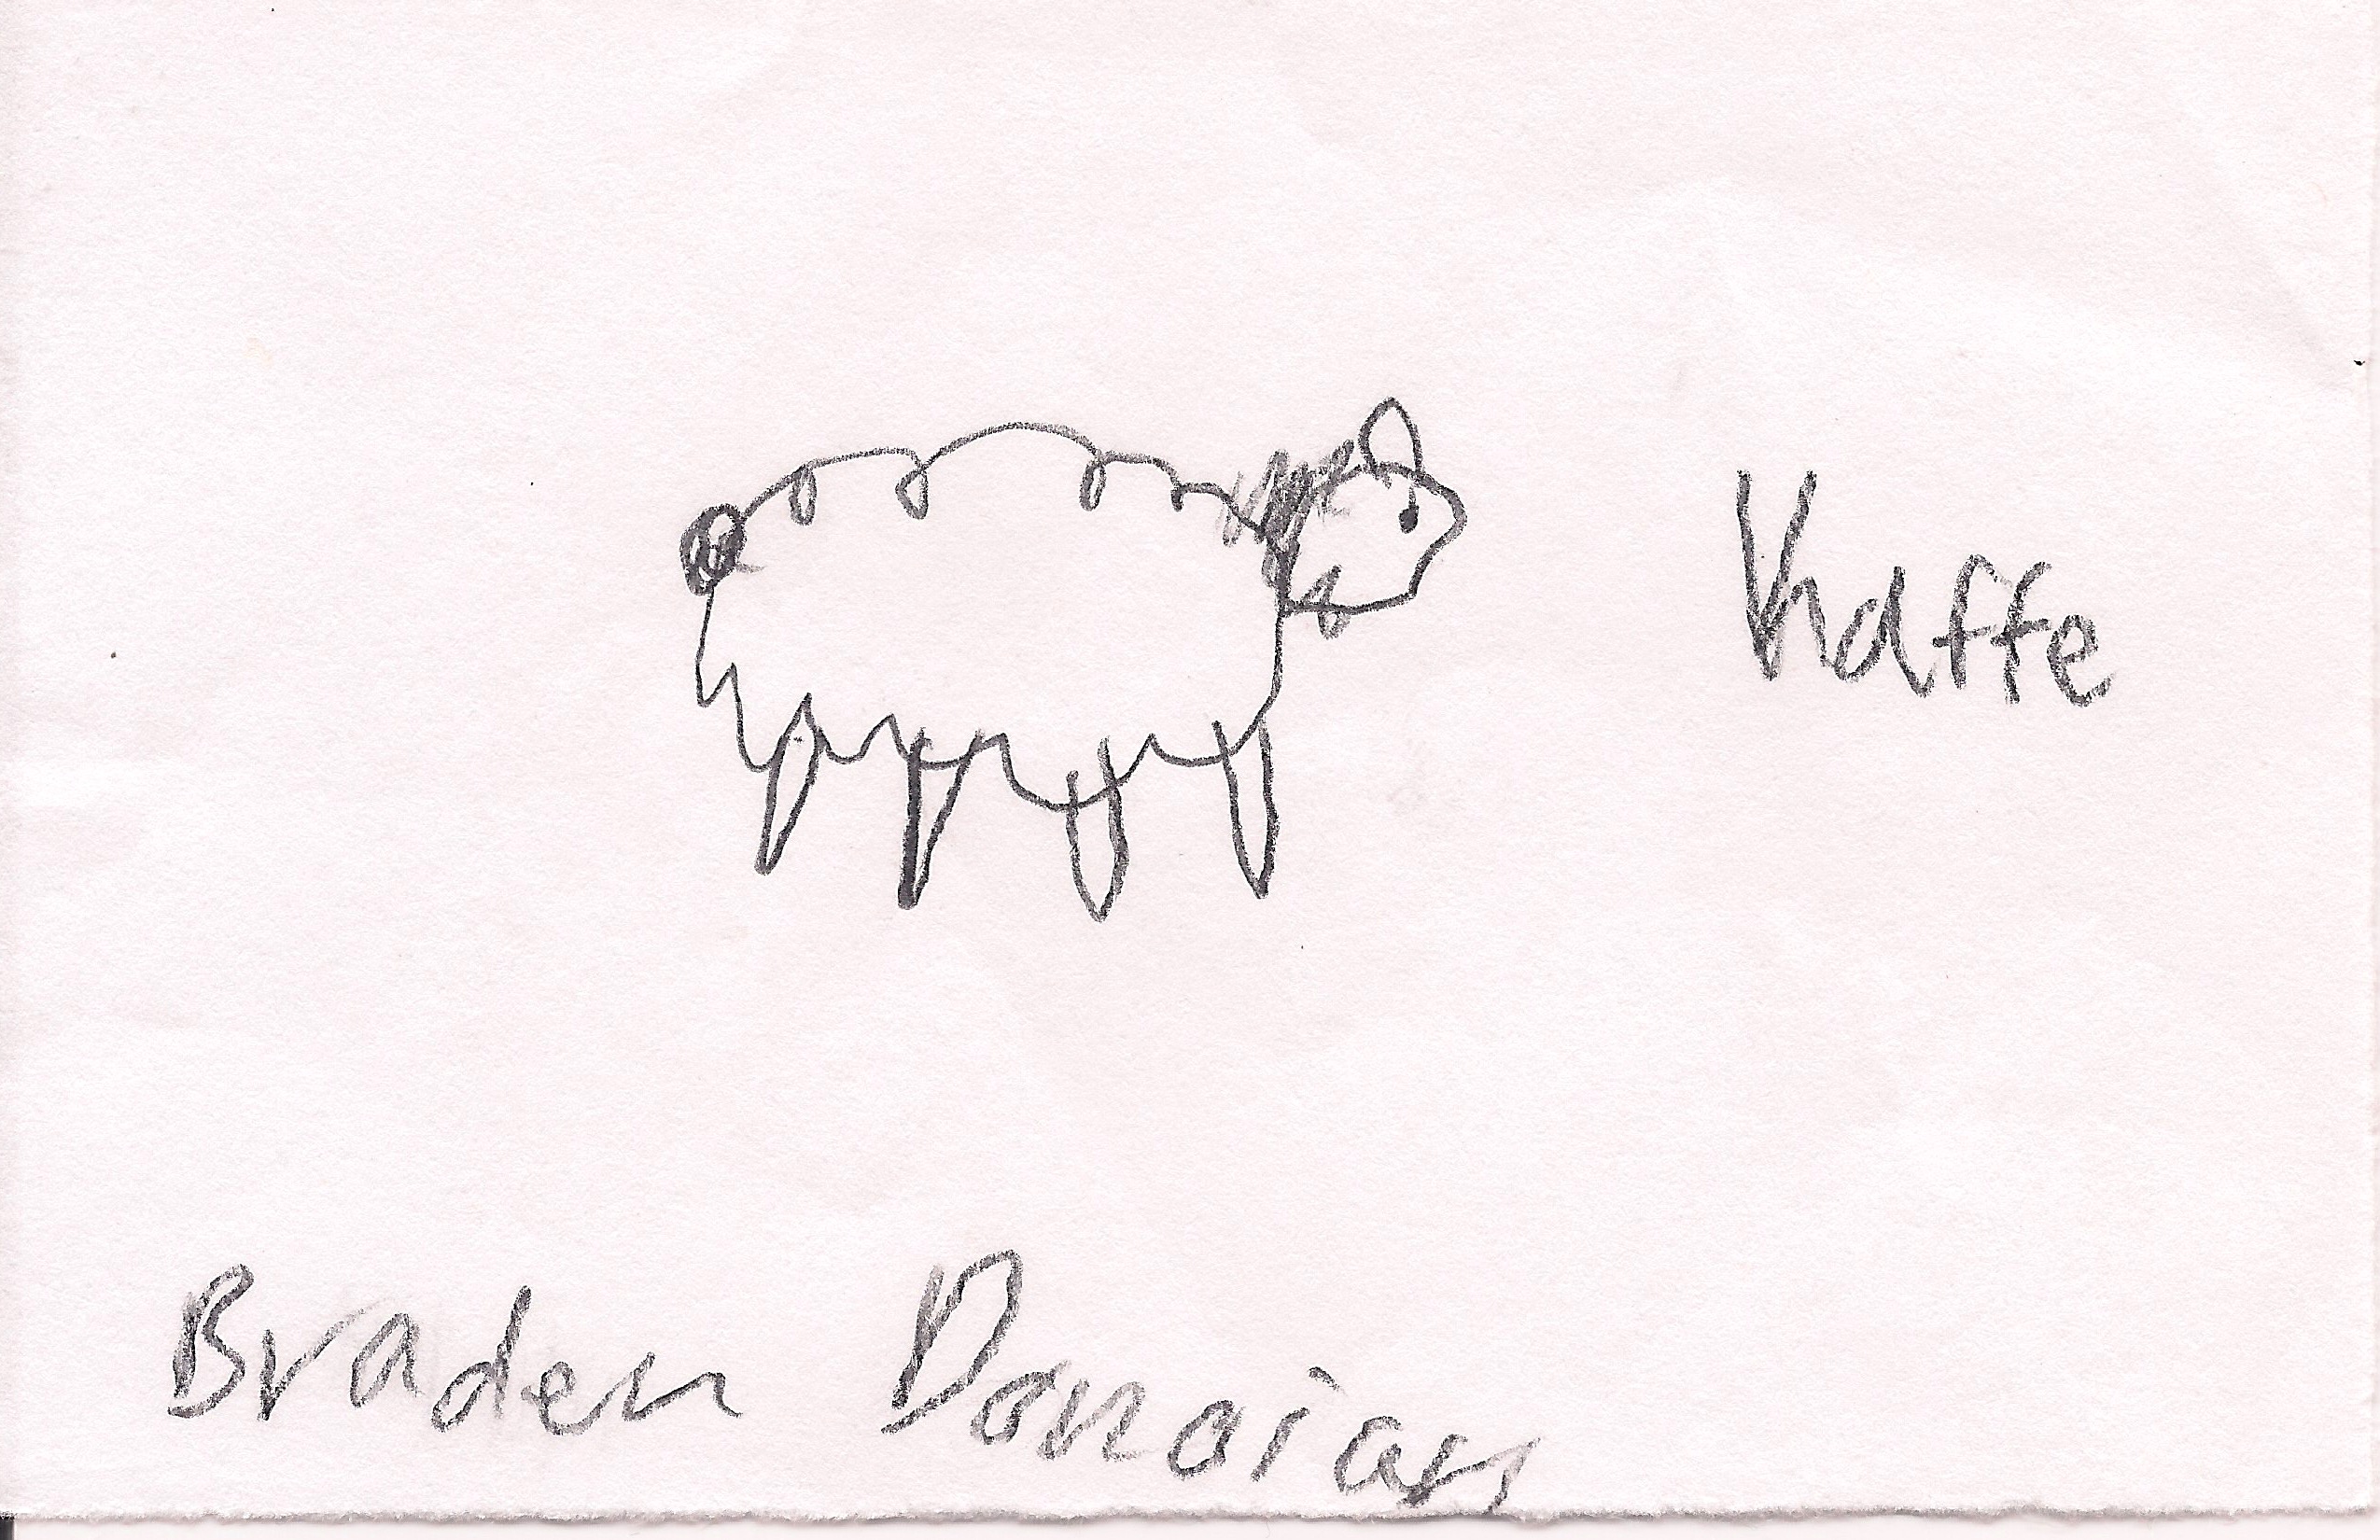 Kaffe
Braden Donoian